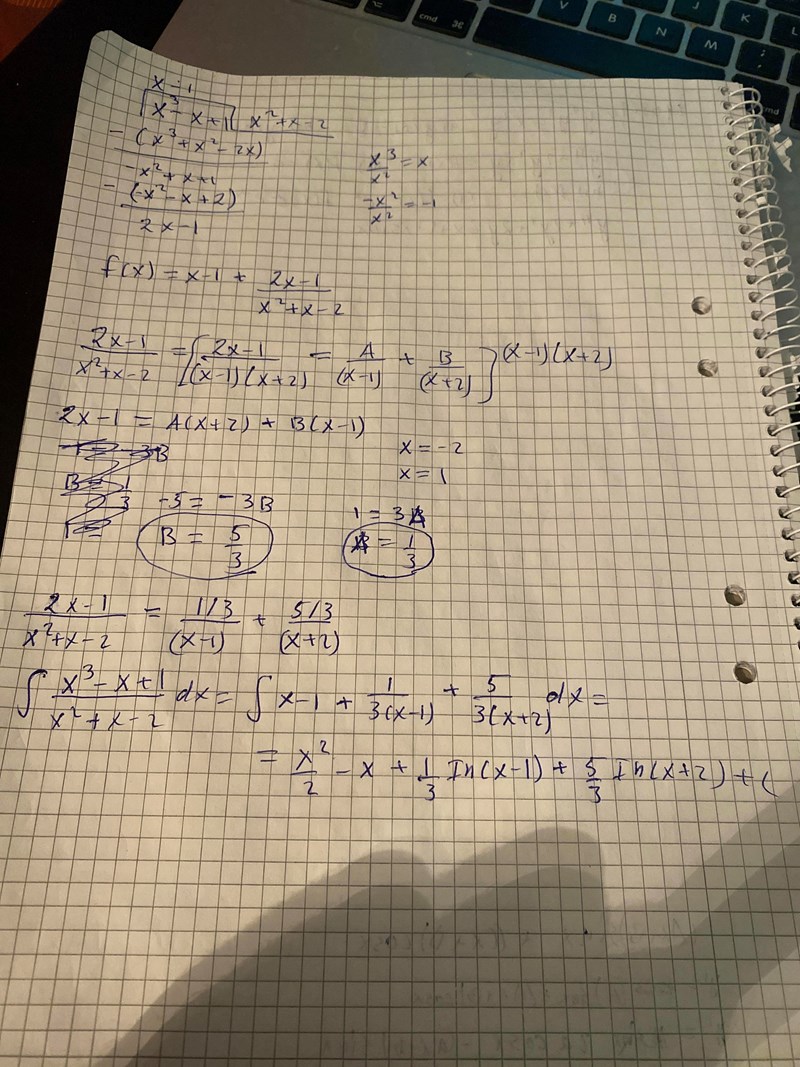 x-1
x³-x+1 x²+x-2
-(x³+x²-2x)
-x²+x+1
-(-x²-x+2)
2x-1
x³/x² = x
-x²/x² = -1
f(x) = x-1 + (2x-1)/(x²+x-2)
(2x-1)/(x²+x-2) = [(2x-1)/((x-1)(x+2)) = A/(x-1) + B/(x+2)] (x-1)(x+2)
2x-1 = A(x+2) + B(x-1)
x = -2
x = 1
-5 = -3B
B = 5/3
1 = 3A
A = 1/3
(2x-1)/(x²+x-2) = (1/3)/(x-1) + (5/3)/(x+2)
∫ (x³-x+1)/(x²+x-2) dx = ∫ x-1 + 1/(3(x-1)) + 5/(3(x+2)) dx =
= x²/2 - x + 1/3 In(x-1) + 5/3 In(x+2) + C
cmd
⌘
V
B
N
M
J
K
L